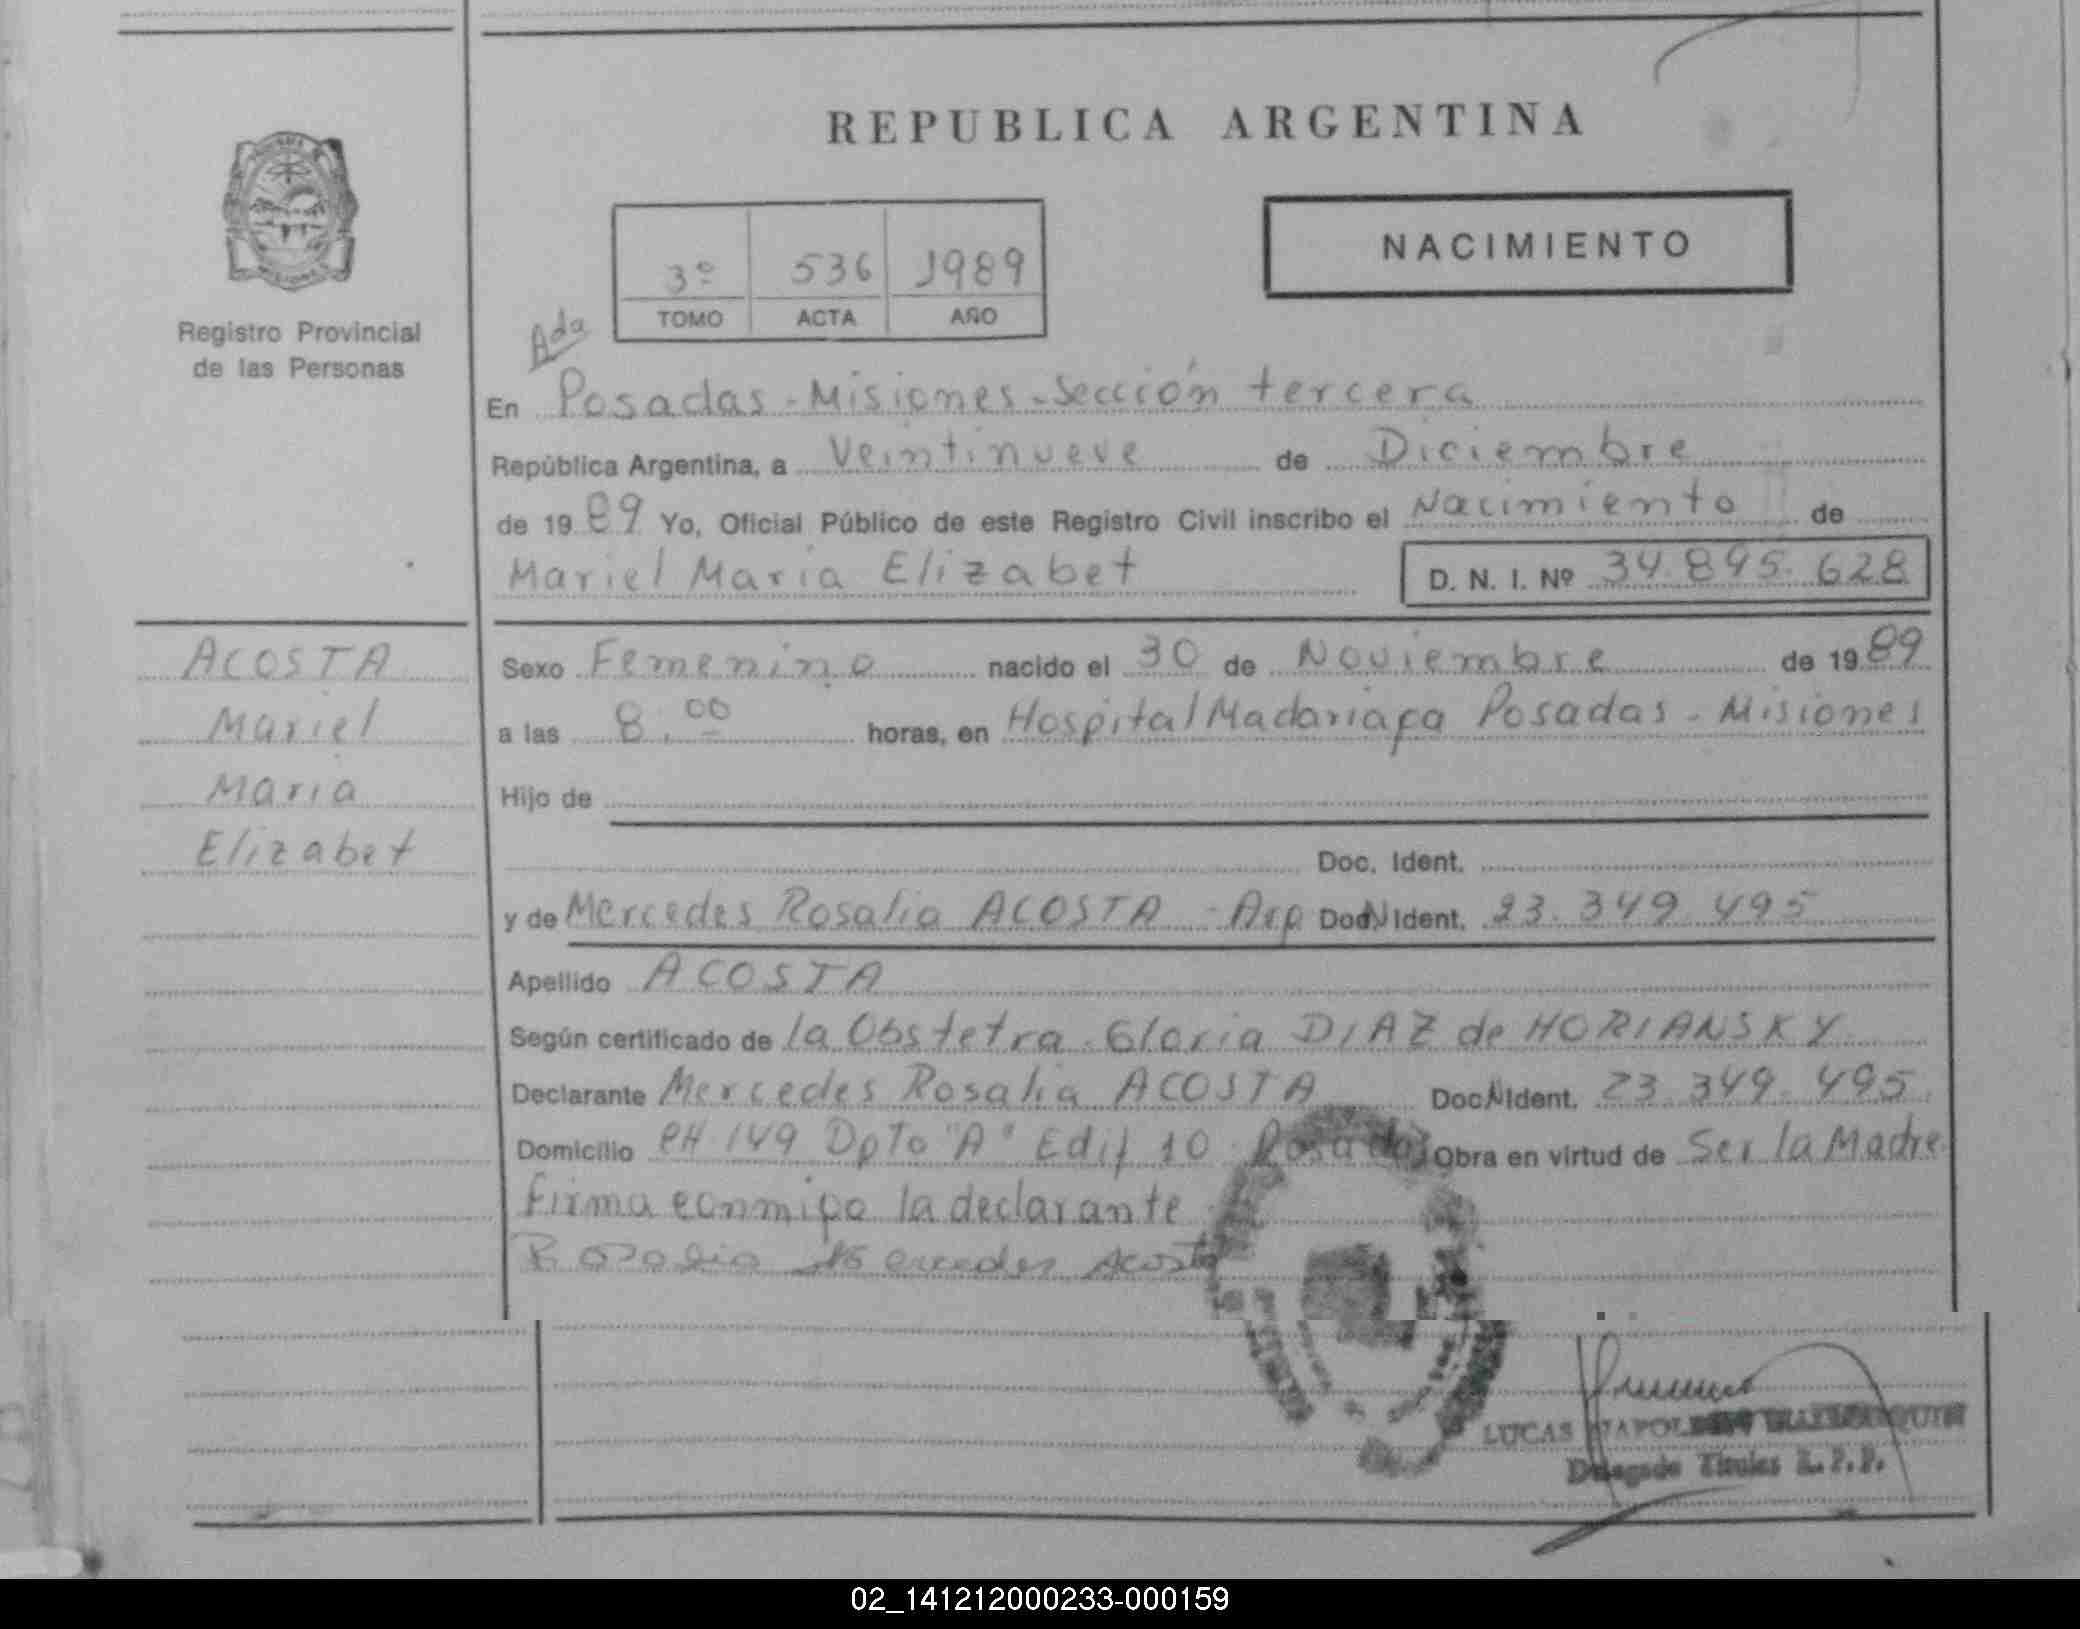 REPUBLICA ARGENTINA
NACIMIENTO
3º 536 1989
TOMO ACTA AÑO
Registro Provincial
de las Personas
Ada
En Posadas - Misiones - Sección tercera
República Argentina, a Veintinueve de Diciembre
de 1989 Yo, Oficial Público de este Registro Civil inscribo el Nacimiento de
Mariel Maria Elizabet D. N. I. Nº 34.895.628
ACOSTA
Mariel
Maria
Elizabet
Sexo Femenino nacido el 30 de Noviembre de 1989
a las 8.00 horas, en Hospital Madariaga Posadas - Misiones
Hijo de
Doc. Ident.
y de Mercedes Rosalia ACOSTA - Arg Doc. Ident. 23.349.495
Apellido ACOSTA
Según certificado de la Obstetra Gloria DIAZ de HORIANSKY
Declarante Mercedes Rosalia ACOSTA Doc. Ident. 23.349.495
Domicilio CH 149 Dpto "A" Edif 10 Posadas Obra en virtud de Ser la Madre
Firma conmigo la declarante
Rosalia Mercedes Acosta
LUCAS
Delegado Titular R.P.P.
02_141212000233-000159